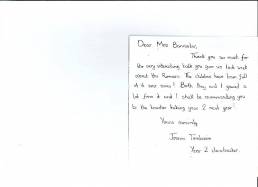 Dear Mrs Bannister,
Thank you so much for
the very interesting talk you gave us last week
about the Romans. The children have been full
of it ever since! Both they and I gained a
lot from it and I shall be recommending you
to the teacher taking year 2 next year!
Yours sincerely,
Joanna Tomlinson
Year 2 classteacher.